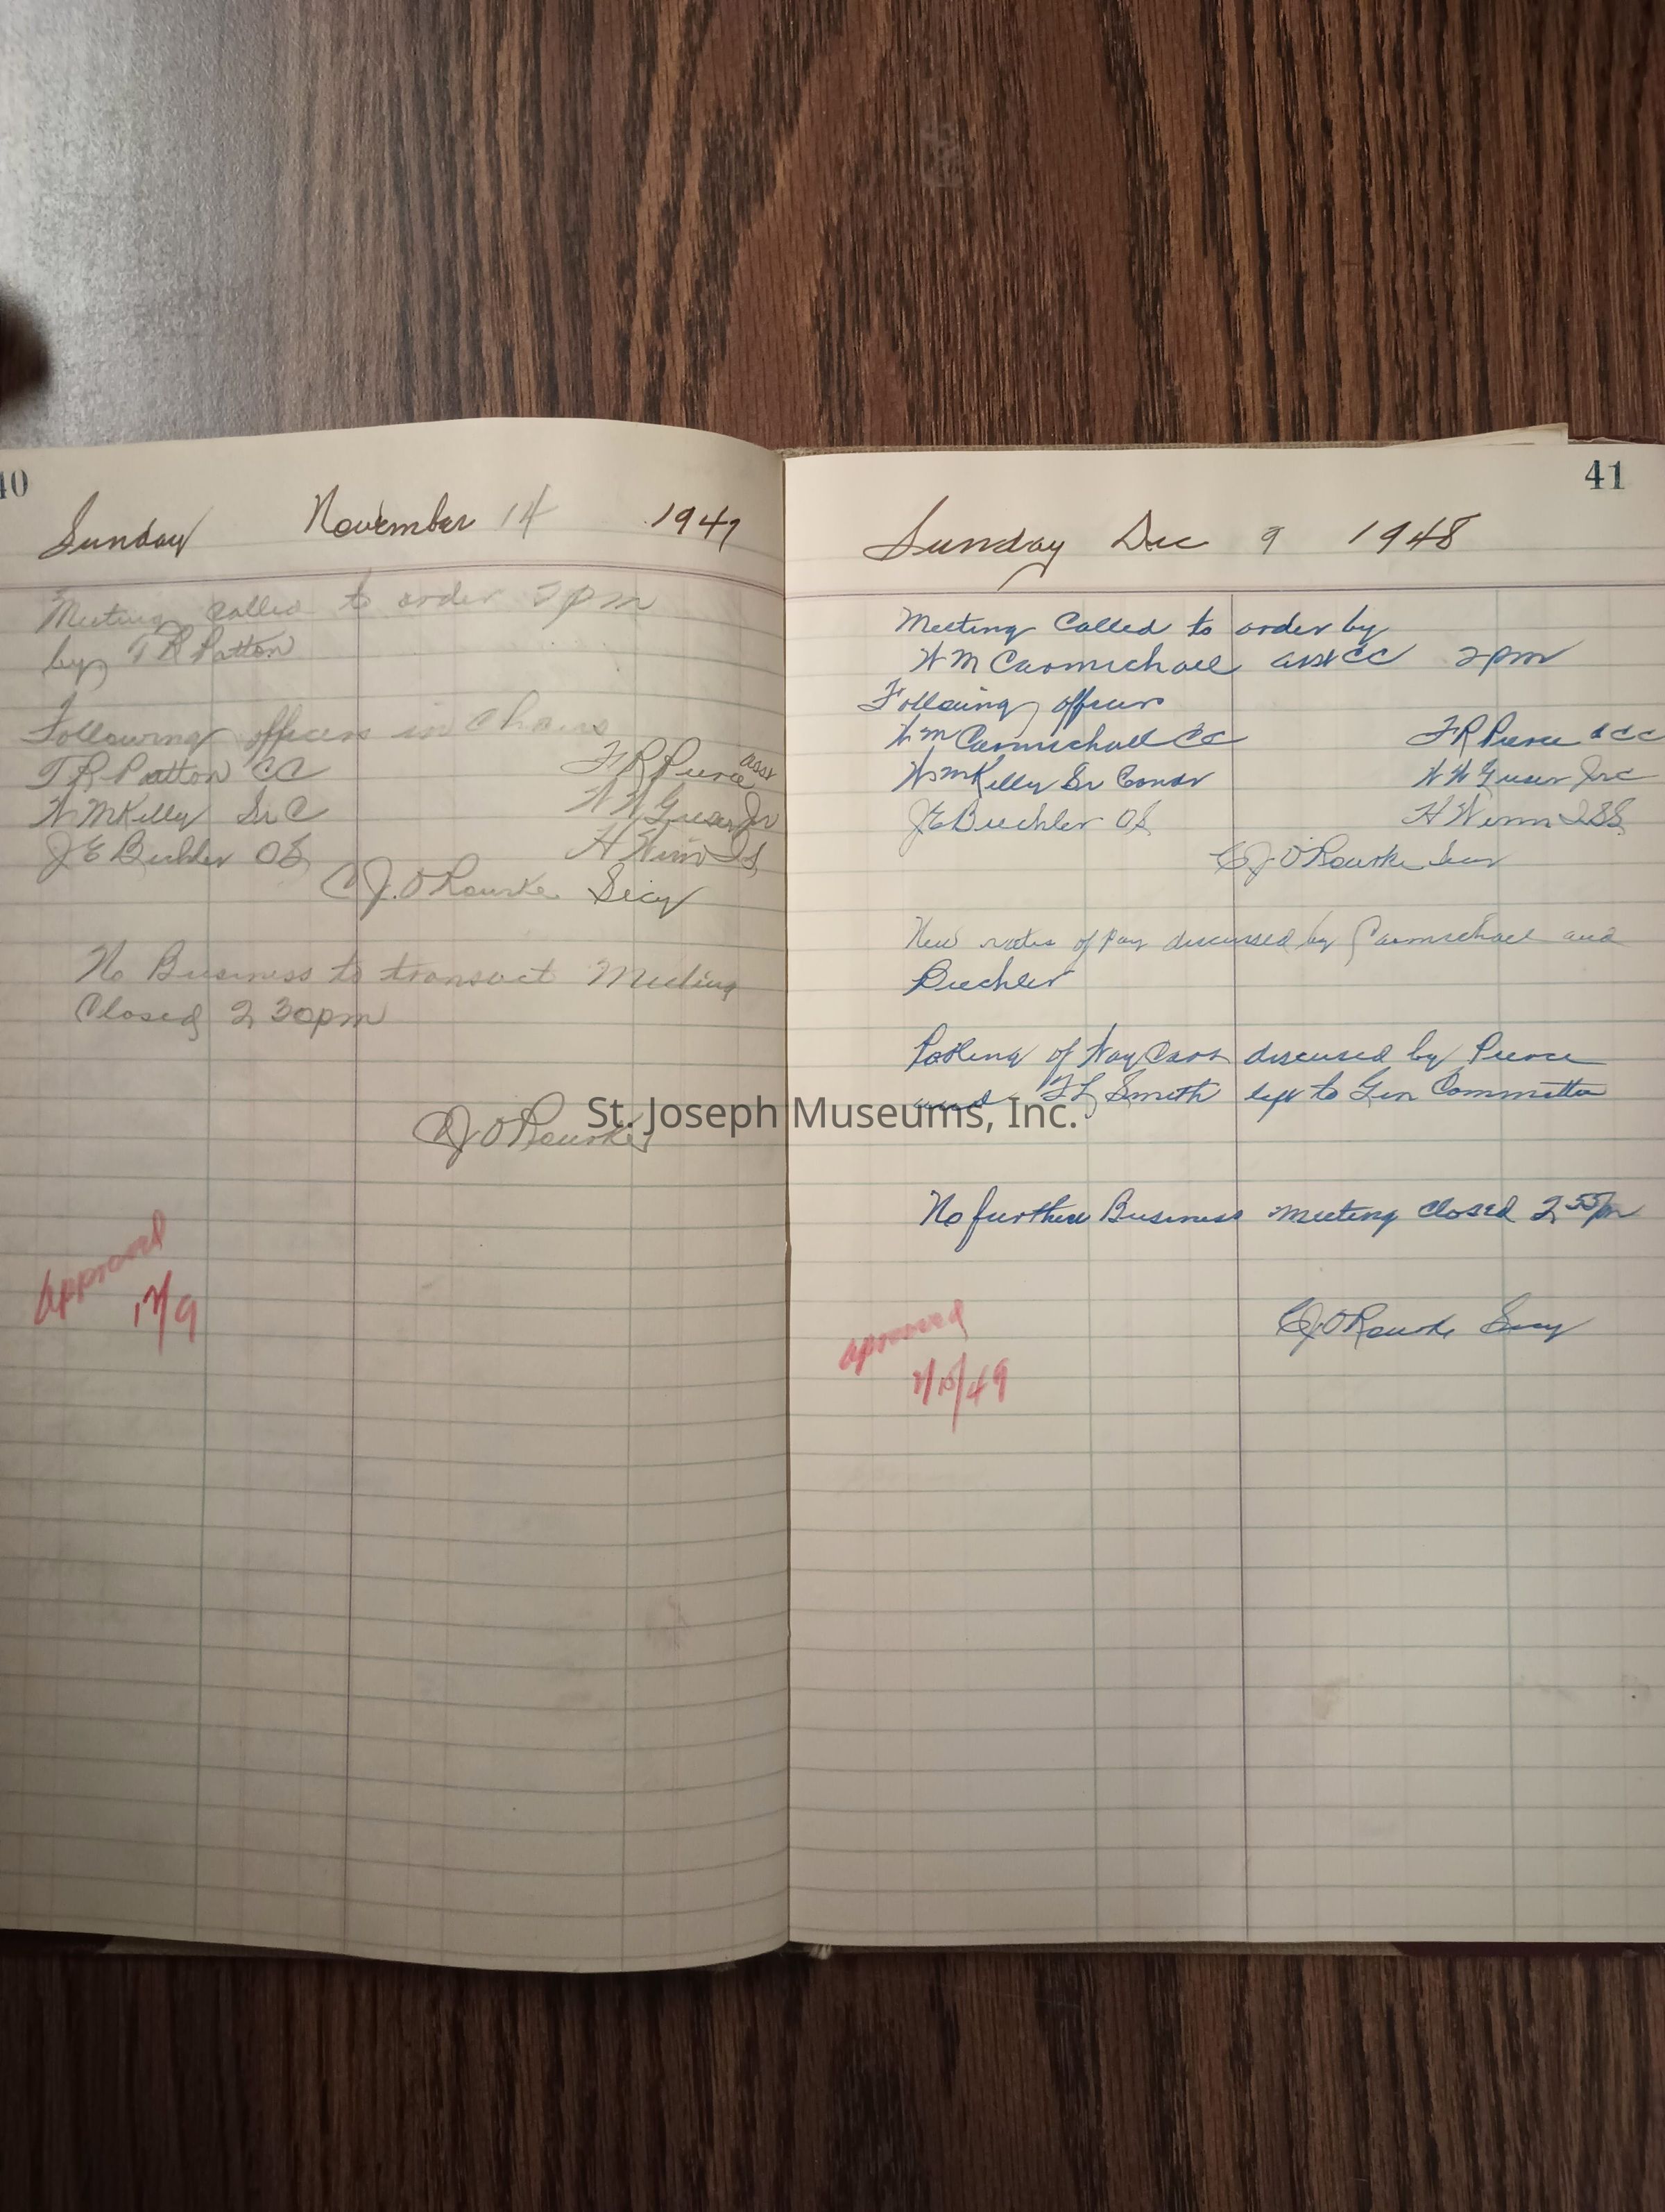 40
Sunday November 14 1947
Meeting called to order 2 pm
by T R Patton
Following officers in Chairs
T R Patton CC F R Pierce asst
W M Kelly Sr C W W Guser Jr
J E Buehler OS H Winn IS
C J. O Rourke Secy
No Business to transact Meeting
Closed 2 30pm
C J O Rourke
Approved
12/9
41
Sunday Dec 9 1948
Meeting Called to order by
W M Carmichael asst CC 2pm
Following officers
W M Carmichael CC F R Pierce a CC
W M Kelly Sr Condr W W Guser Jr C
J E Buehler OS H Winn ISS
C J O Rourke Secy
New rates of pay discussed by Carmichael and
Buehler
Pooling of Way Cars discused by Pierce
and Smith left to Gen Committee
No further Business meeting closed 2 55 pm
C J O Rourke Secy
aproved
/15/49
St. Joseph Museums, Inc.